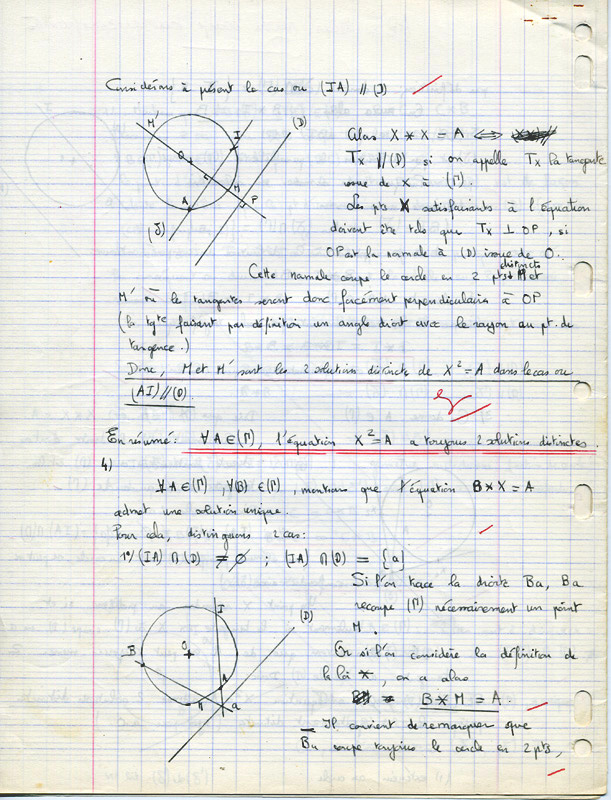 Considérons à présent le cas ou (IA) // (D)
M'
I
(D)
O
M
P
A
(δ)
Alors X * X = A ⟺
Tx // (D) si on appelle Tx la tangente
issue de X à (Γ).
Les pts X satisfaisants à l'équation
doivent être tels que Tx ⊥ OP, si
OP est la normale à (D) issue de O.
Cette normale coupe le cercle en 2 pts distincts M et
M' où les tangentes seront donc forcément perpendiculaires à OP
(la tgte faisant par définition un angle droit avec le rayon au pt. de
tangence.)
Donc, M et M' sont les 2 solutions distinctes de X² = A dans le cas ou
(AI) // (D).
En résumé : ∀A∈(Γ), l'équation X² = A a toujours 2 solutions distinctes.
4)
∀A∈(Γ), ∀(B) ∈(Γ), montrons que l'équation B * X = A
admet une solution unique.
Pour cela, distinguons 2 cas:
1°/ (IA) ∩ (D) ≠ ∅ ; (IA) ∩ (D) = {a}
Si l'on trace la droite Ba, Ba
recoupe (Γ) nécessairement un point
M.
I
(D)
O
B
A
a
Or si l'on considère la définition de
la loi *, on a alors
B * M = A.
Il convient de remarquer que
Ba coupe toujours le cercle en 2 pts,